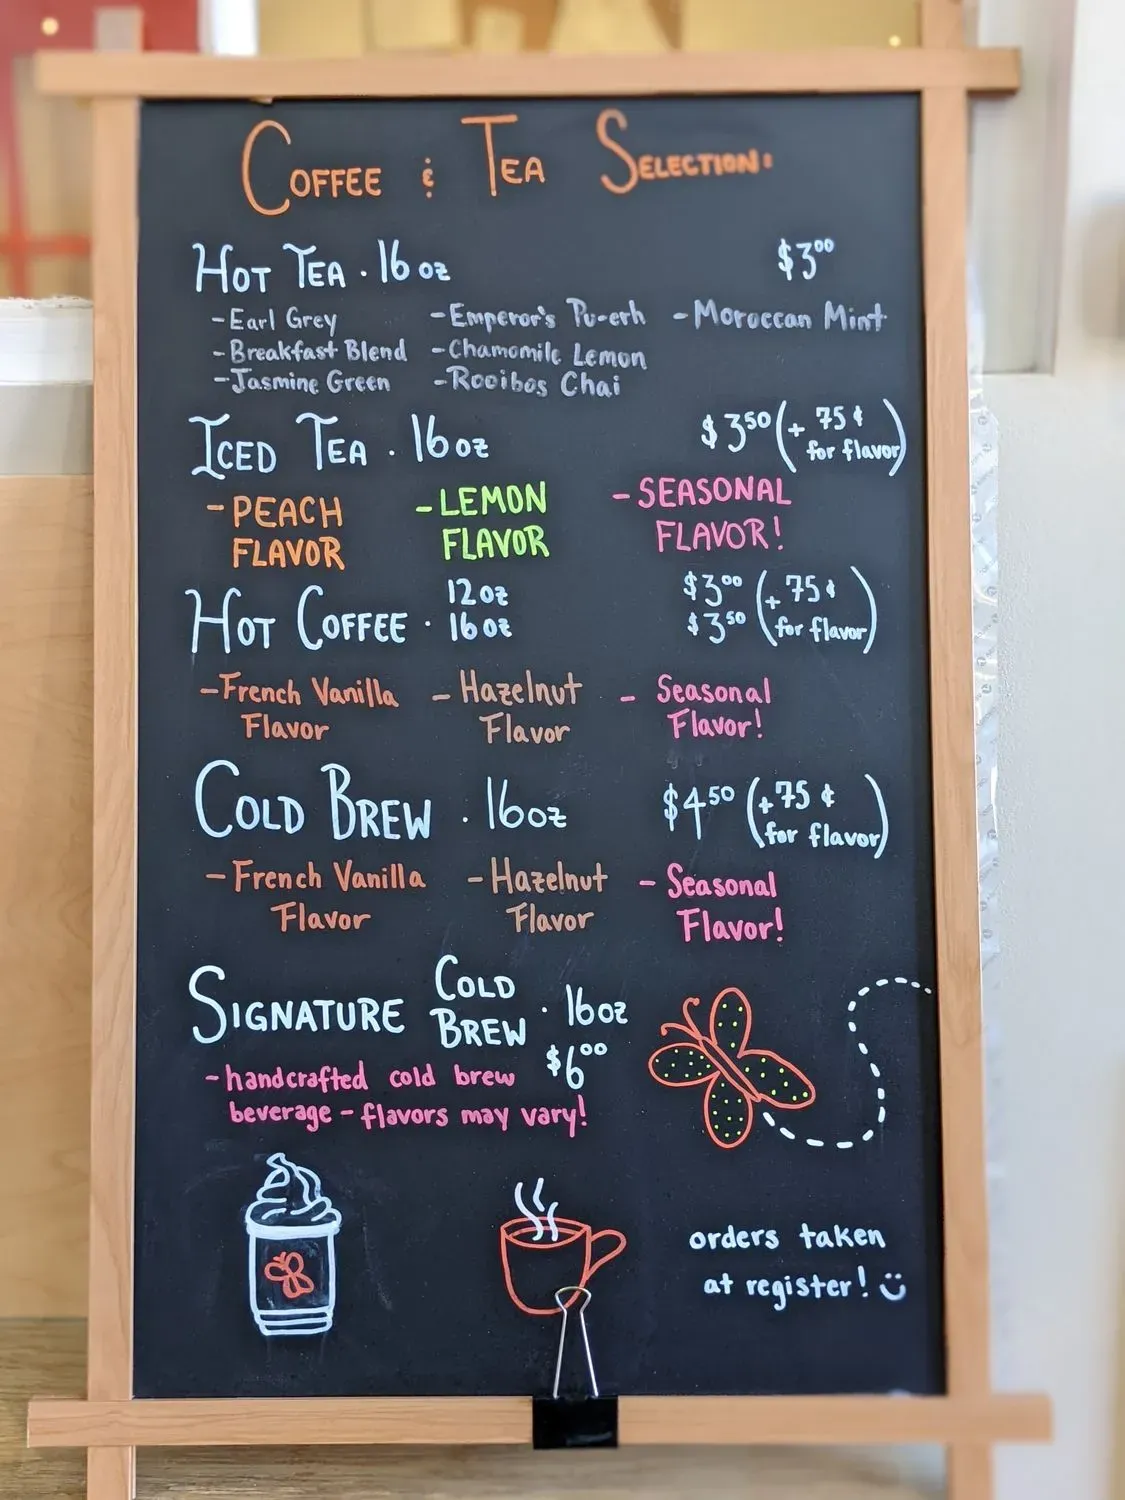 COFFEE & TEA SELECTION:
HOT TEA · 16 oz $3⁰⁰
-Earl Grey -Emperor's Pu-erh -Moroccan Mint
-Breakfast Blend -Chamomile Lemon
-Jasmine Green -Rooibos Chai
ICED TEA · 16 oz $3⁵⁰ (+ 75¢
for flavor)
-PEACH -LEMON -SEASONAL
FLAVOR FLAVOR FLAVOR!
12 oz $3⁰⁰ (+ 75¢
HOT COFFEE · 16 oz $3⁵⁰ for flavor)
-French Vanilla -Hazelnut - Seasonal
Flavor Flavor Flavor!
COLD BREW · 16oz $4⁵⁰ (+75¢
for flavor)
-French Vanilla -Hazelnut - Seasonal
Flavor Flavor Flavor!
SIGNATURE COLD
BREW · 16oz
$6⁰⁰
-handcrafted cold brew
beverage - flavors may vary!
orders taken
at register!